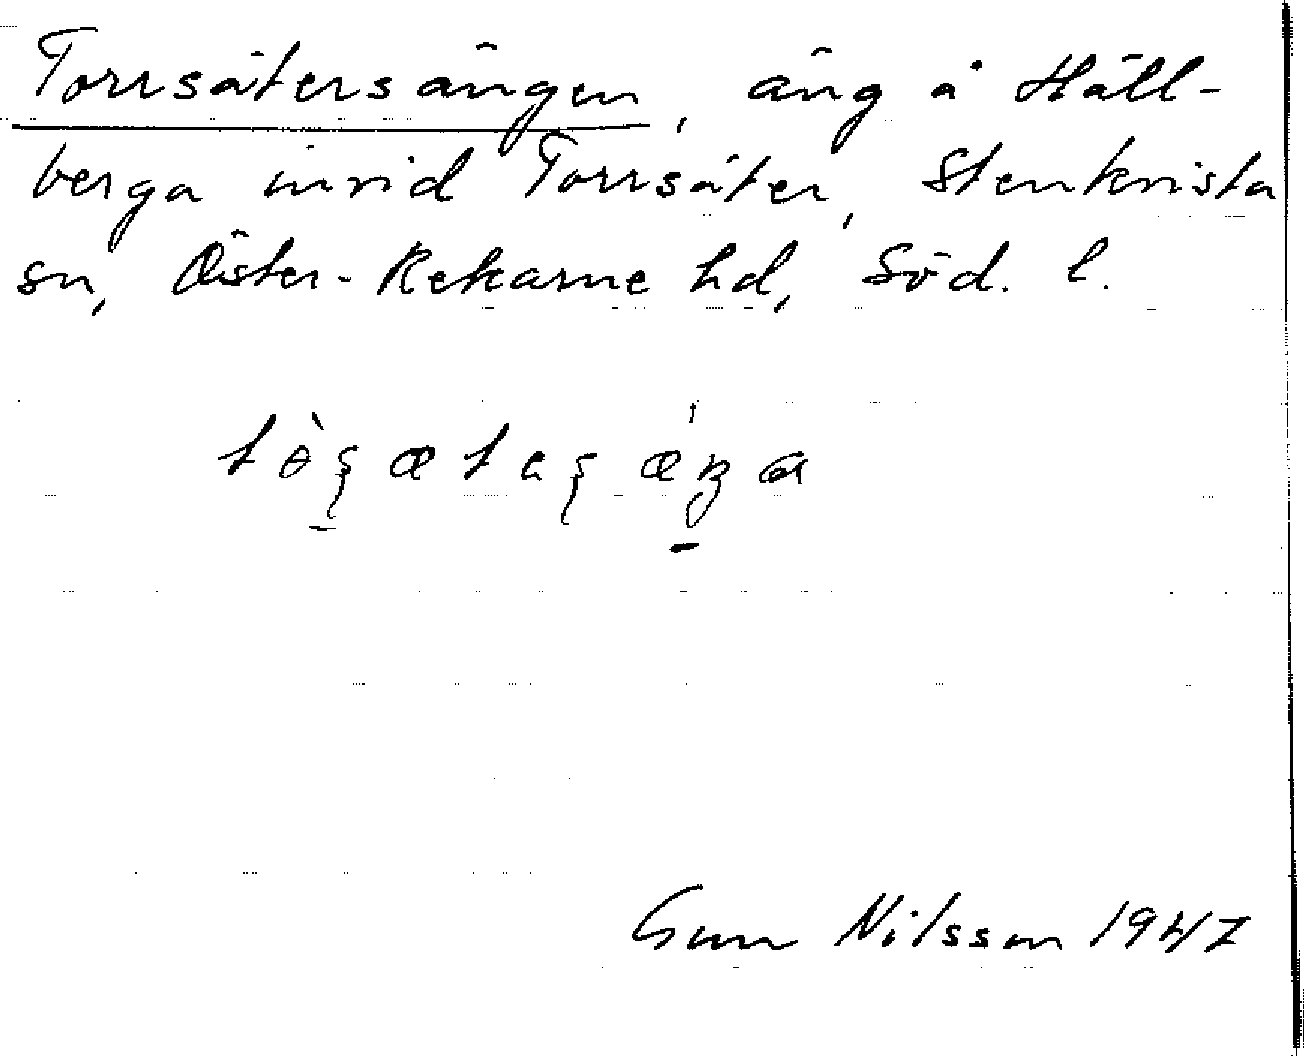 Torrsätersängen, äng å Häll-
berga invid Torrsäter, Stenkvista
sn, Öster-Rekarne hd, Söd. l.
Gun Nilsson 1947